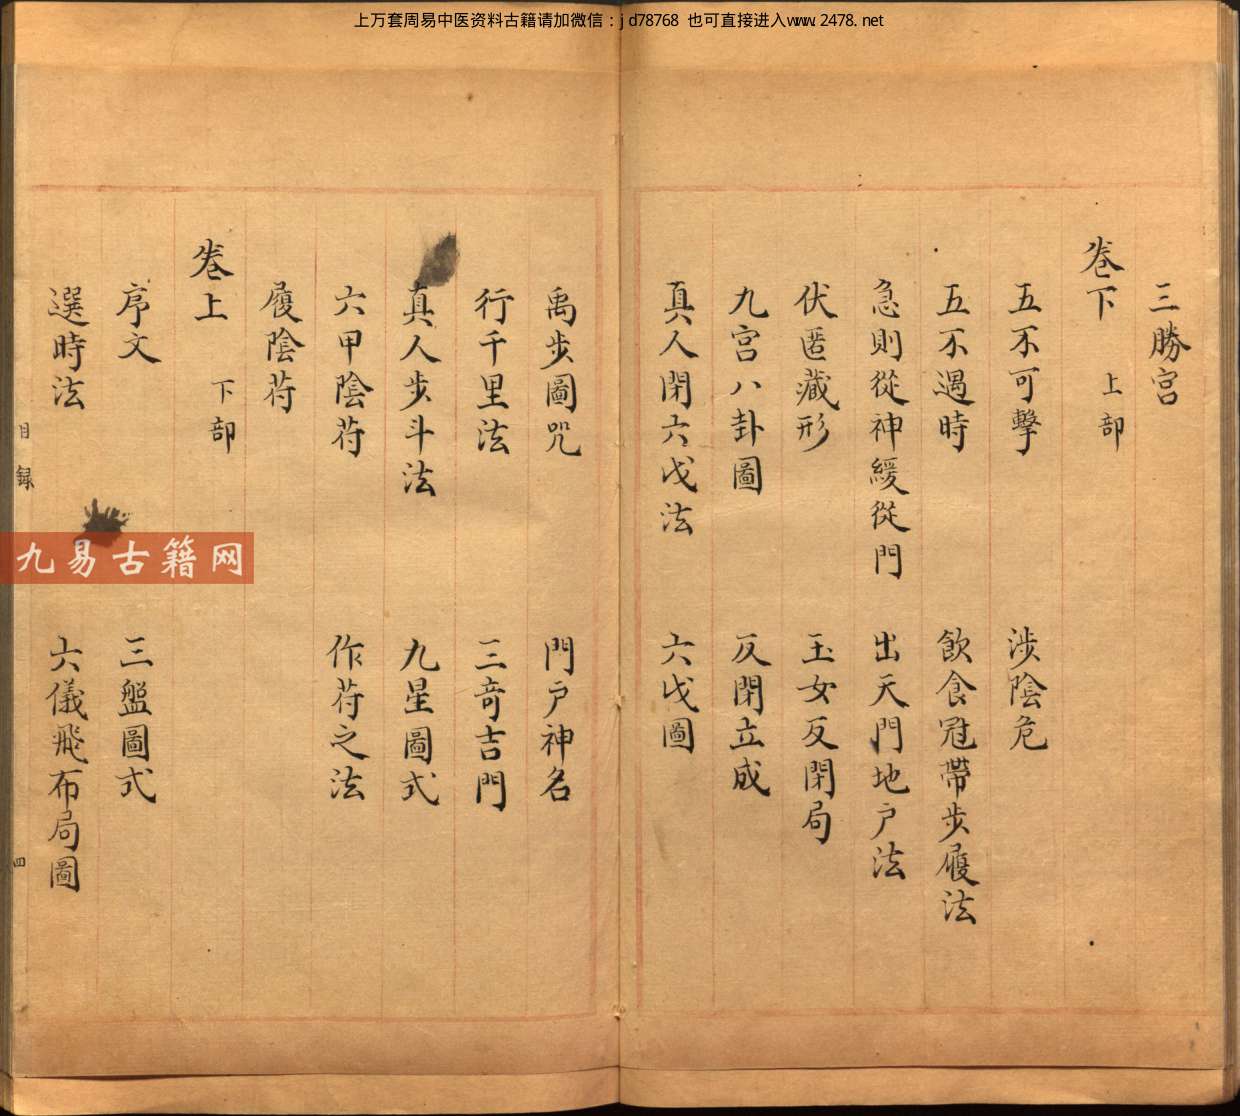 上万套周易中医资料古籍请加微信：jd78768 也可直接进入www.2478.net
三勝宫
卷下 上部
五不可擊 涉陰危
五不遇時 飲食冠帶步履法
急則從神緩從門 出天門地户法
伏匿藏形 玉女反閉局
九宫八卦圖 反閉立成
真人閉六戊法 六戊圖
禹步圖咒 門户神名
行千里法 三奇吉門
真人步斗法 九星圖式
六甲陰符 作符之法
履陰符
卷上 下部
序文 三盤圖式
選時法 六儀飛布局圖
目録 四
九易古籍网